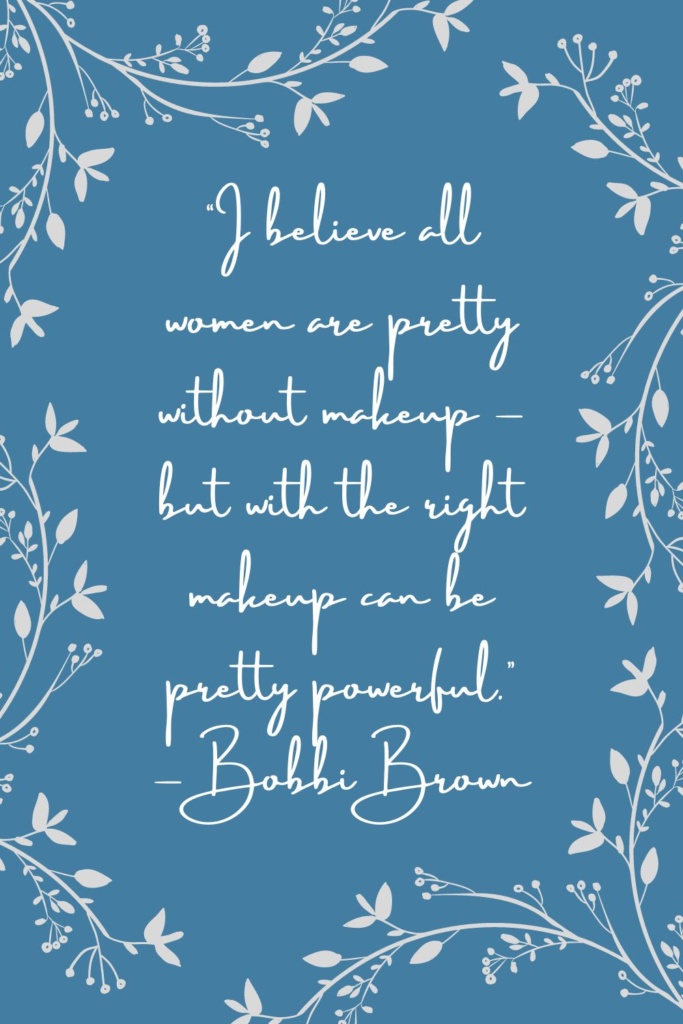 “I believe all
women are pretty
without makeup –
but with the right
makeup can be
pretty powerful.”
– Bobbi Brown